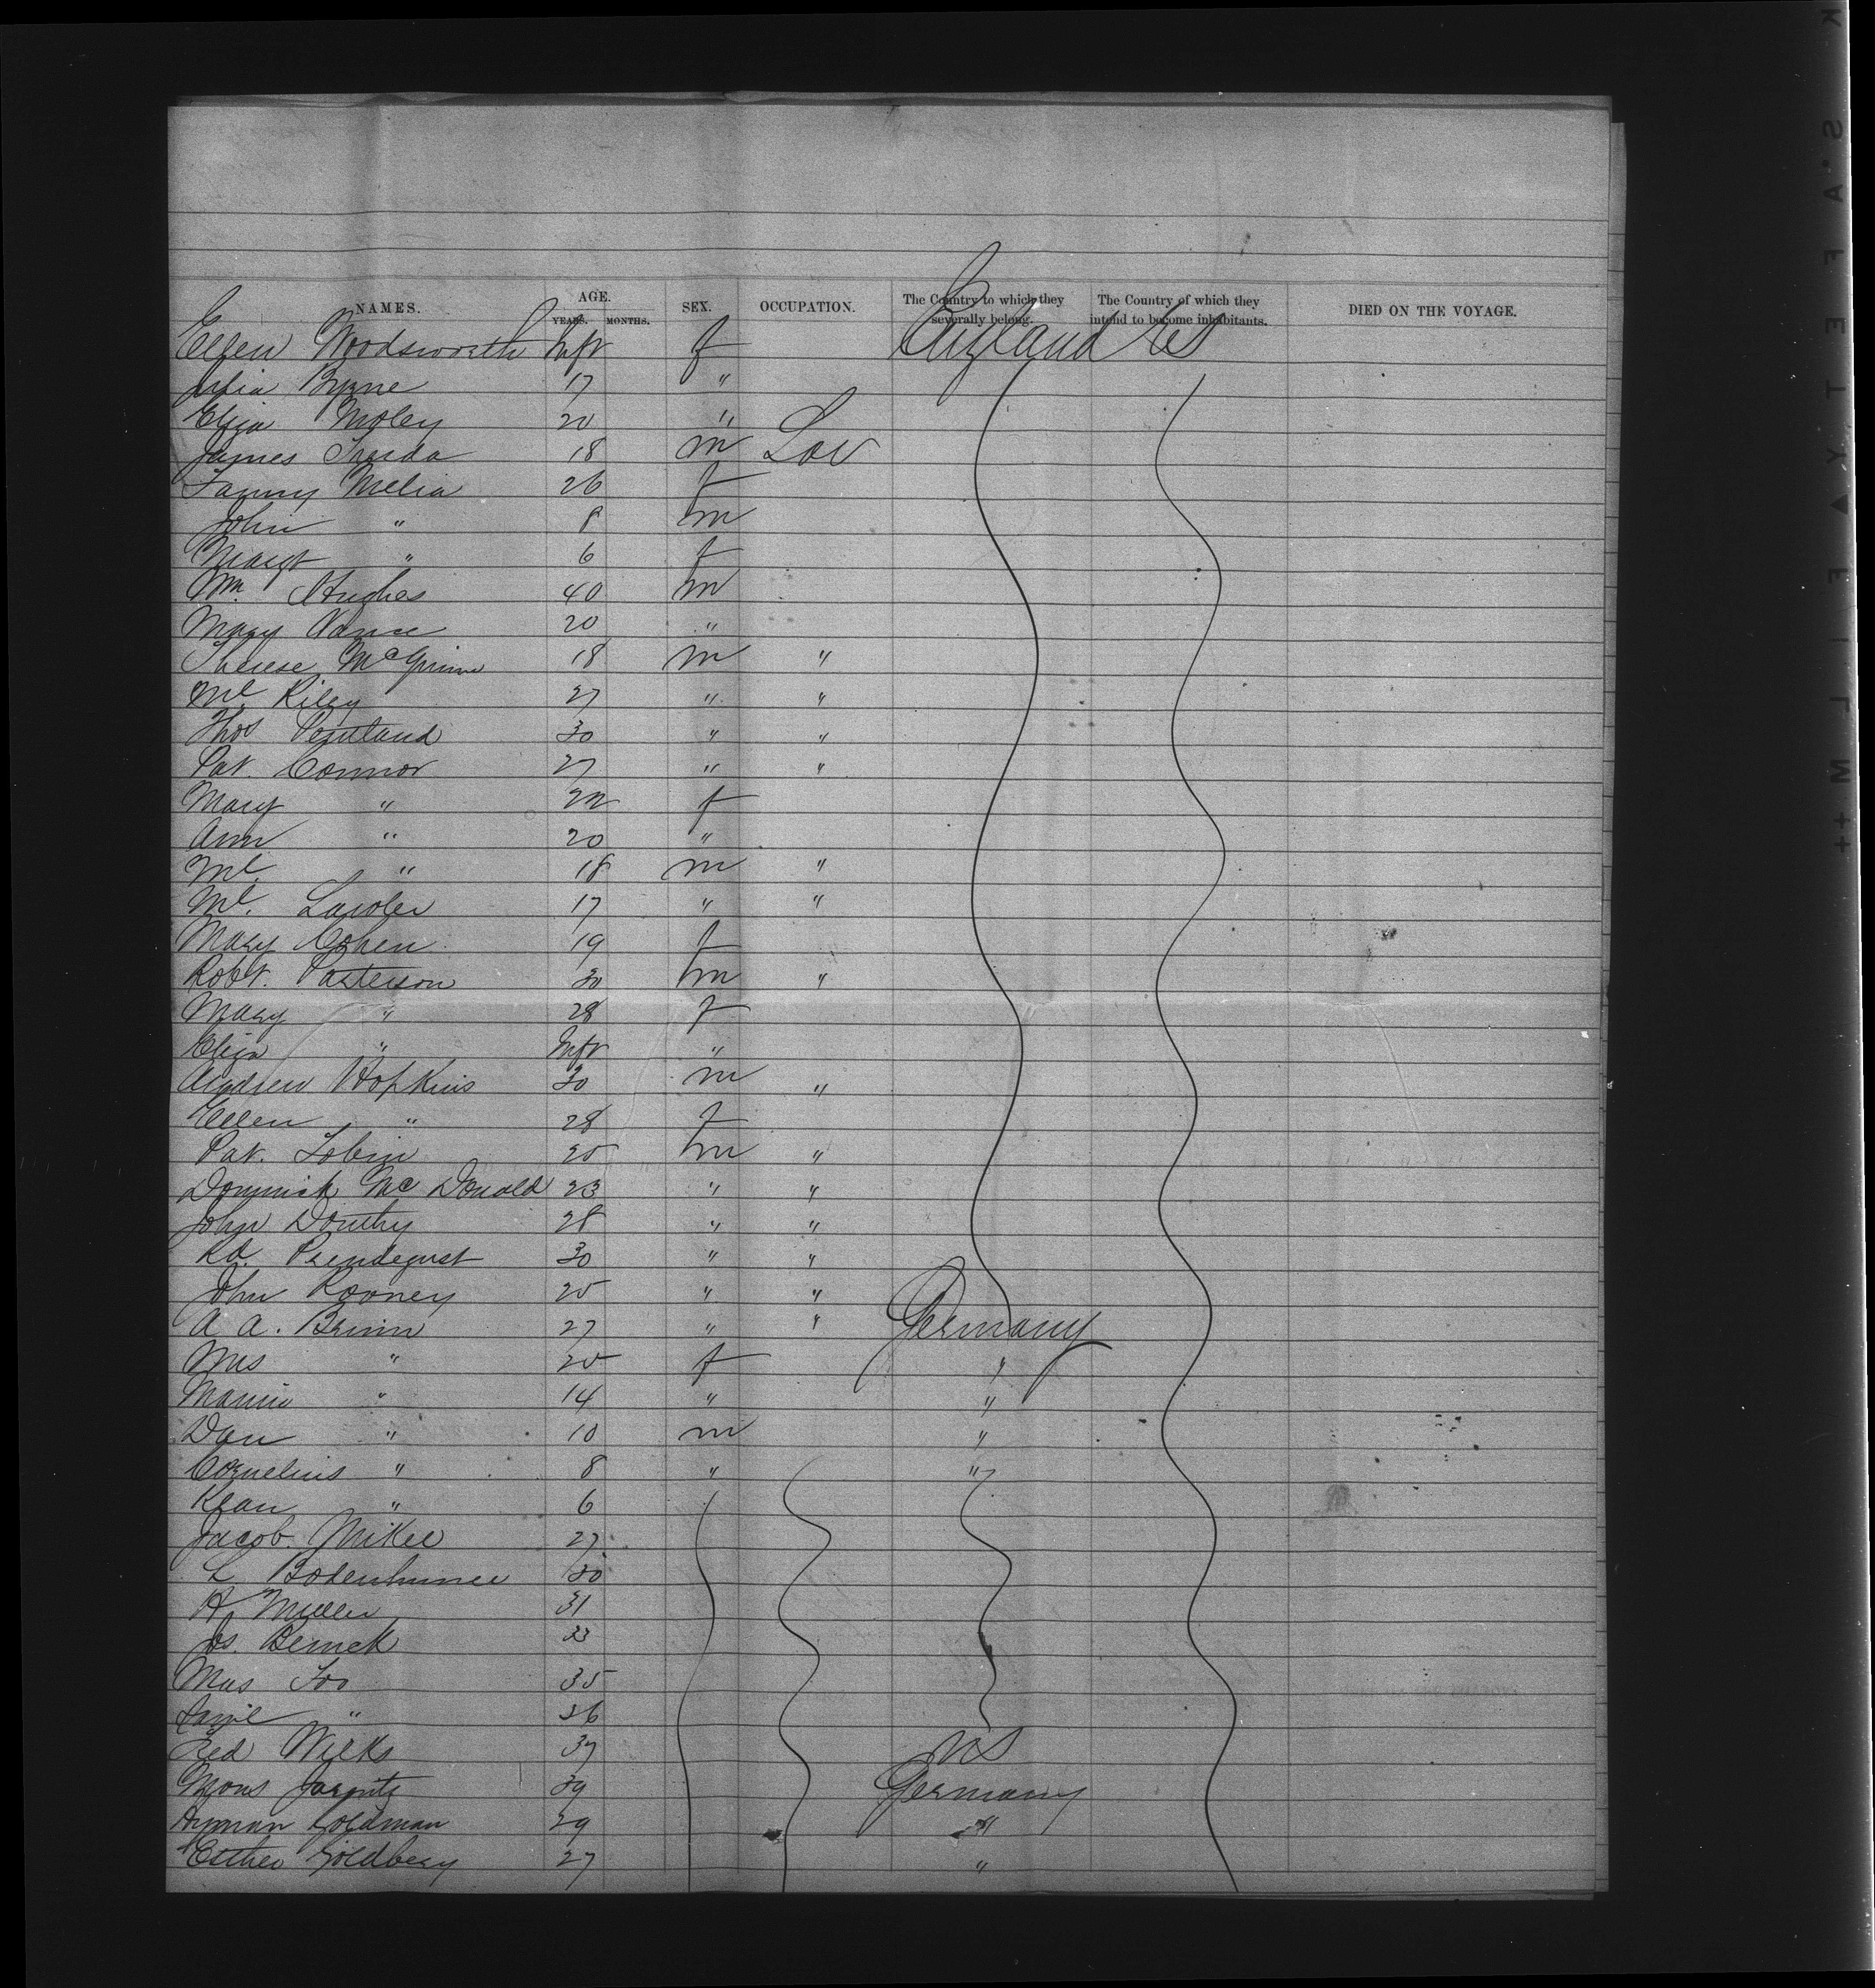 NAMES. AGE. YEARS. MONTHS. SEX. OCCUPATION. The Country to which they severally belong. The Country of which they intend to become inhabitants. DIED ON THE VOYAGE.
Ellen Woodsworth Inft f England US
Julia Byrne 17 "
Eliza Moley 20 "
James 18 m Lab
Fanny Melia 26 f
John " 8 m
Margt " 6 f
Wm. Hughes 40 m
Mary Vance 20 "
Therese McGrinn 18 m "
Ml Riley 27 " "
Thos Pentland 30 " "
Pat. Connor 27 " "
Mary " 22 f
Ann " 20 "
Ml. " 18 m "
Ml. Lawler 17 " "
Mary Cohen 19 f
Robt. Patterson 30 m "
Mary " 28 f
Eliza " Inft "
Andrew Hopkins 30 m "
Ellen " 28 f
Pat. Tobin 20 m "
Dominick Mc Donald 23 " "
John Douthy 28 " "
Rd. Prendegust 30 " "
John Rooney 25 " "
A A. Brinn 27 " " Germany
Mrs " 25 f "
Mamie " 14 " "
Dan " 10 m "
Cornelius " 8 " "
Klan " 6
Jacob Mikel 27
L 30
H Muller 31
Js. Bernek 33
Mrs Foo 35
" 36
Fred Wilks 37 US
Mons 39 Germany
Hyman Goldman 29 "
Esther Goldberg 27 "
SAFETY FILM ++